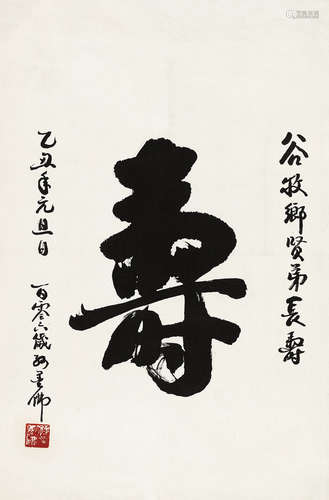 谷牧鄉賢弟長壽
壽
乙丑年元旦日
百零六歲孫墨佛